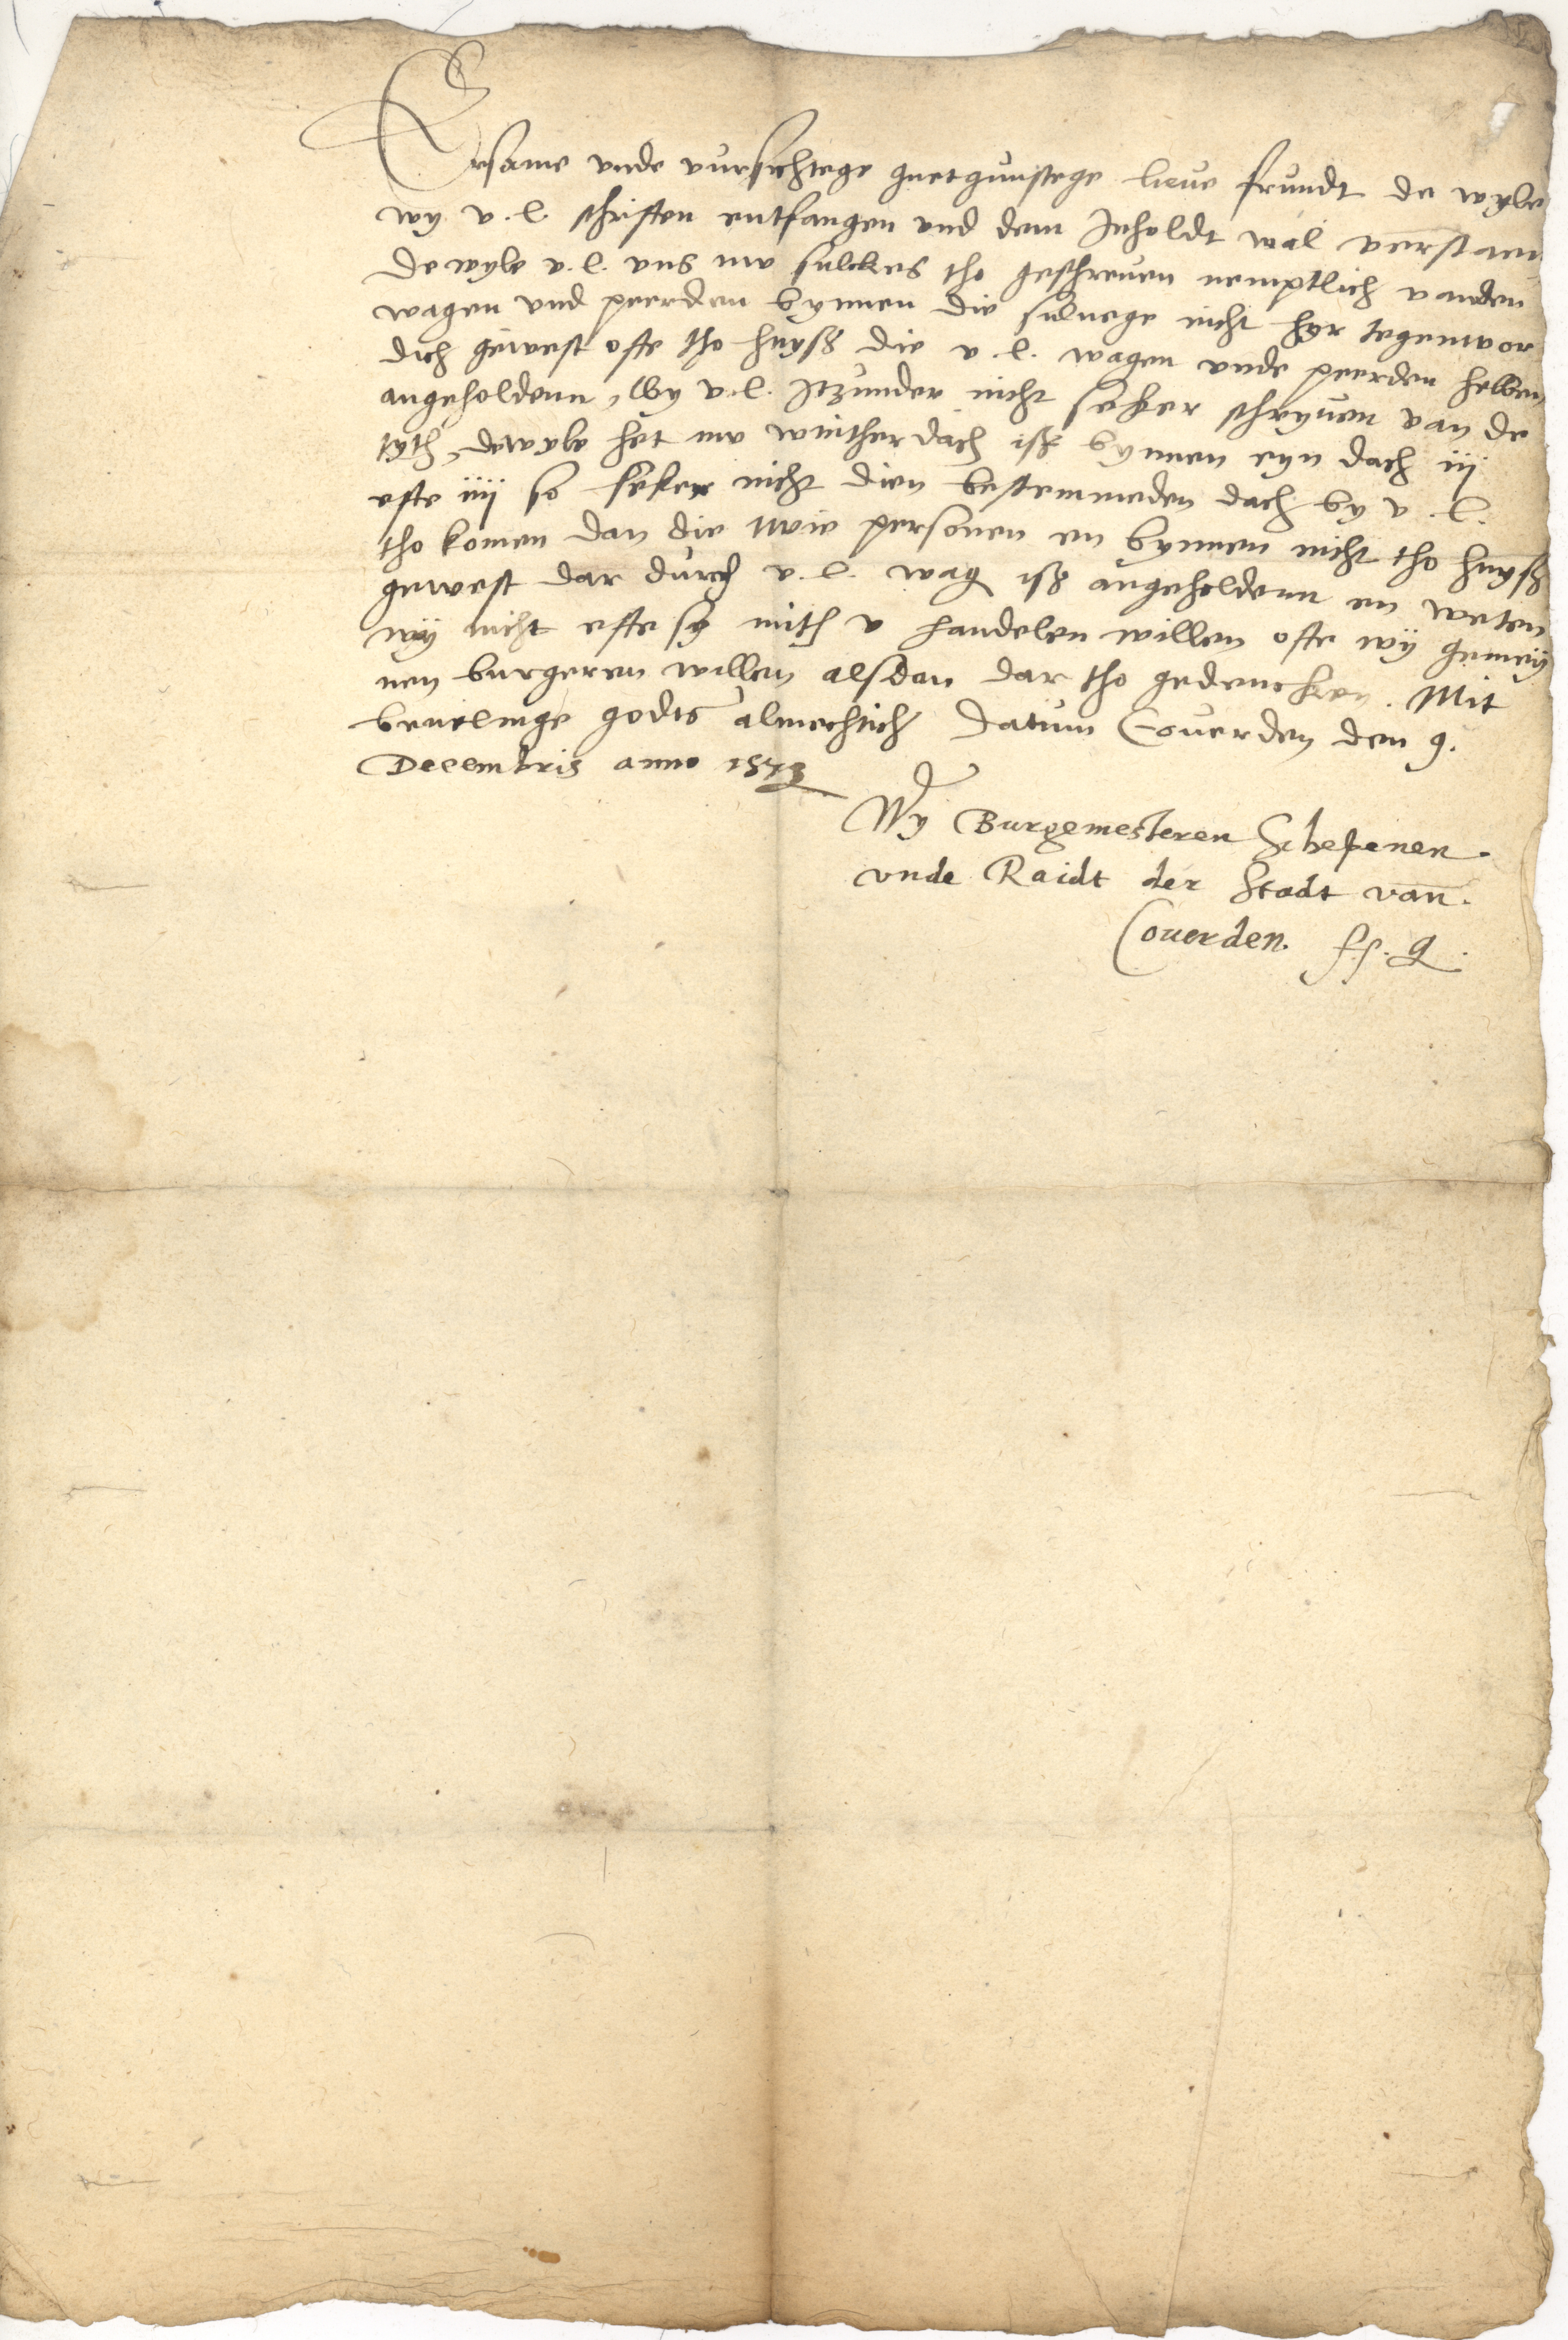 Ersame vnde vursichtege guetgunstege lieue frundt de wyle
wy v. l. schriften entfangen vnd dem Inholdt wal verstaen
de wyle v. l. vns nv sulckes tho geschreuen nemptlich vanden
wagen vnd peerden bynnen die suluege nicht hyr tegenwor
dich gewest ofte tho huyß die v. l. wagen vnde peerden hebben
angeholdenn, Wy v. l. Itzunder nicht seker schryuen van de
tyth, dewyle het nv wintherdach iß bynnen eyn dach iij
efte iiij so seker nicht dien bestemmeden dach by v. l.
tho komen dan die twie personen en bynnen nicht tho huyß
gewest dar durch v. l. wag iß angeholdenn en weten
wÿ nicht efte sy mith v handelen willen ofte wÿ gemeÿ
nen burgeren willen alsdan dar tho gedencken. Mit
beuelinge godts almechtich datum Couerden den 9.
Decembris anno 1573
Wy Burgemesteren Schepenen.
vnde Raidt der Stadt van.
Couerden. ss. q.